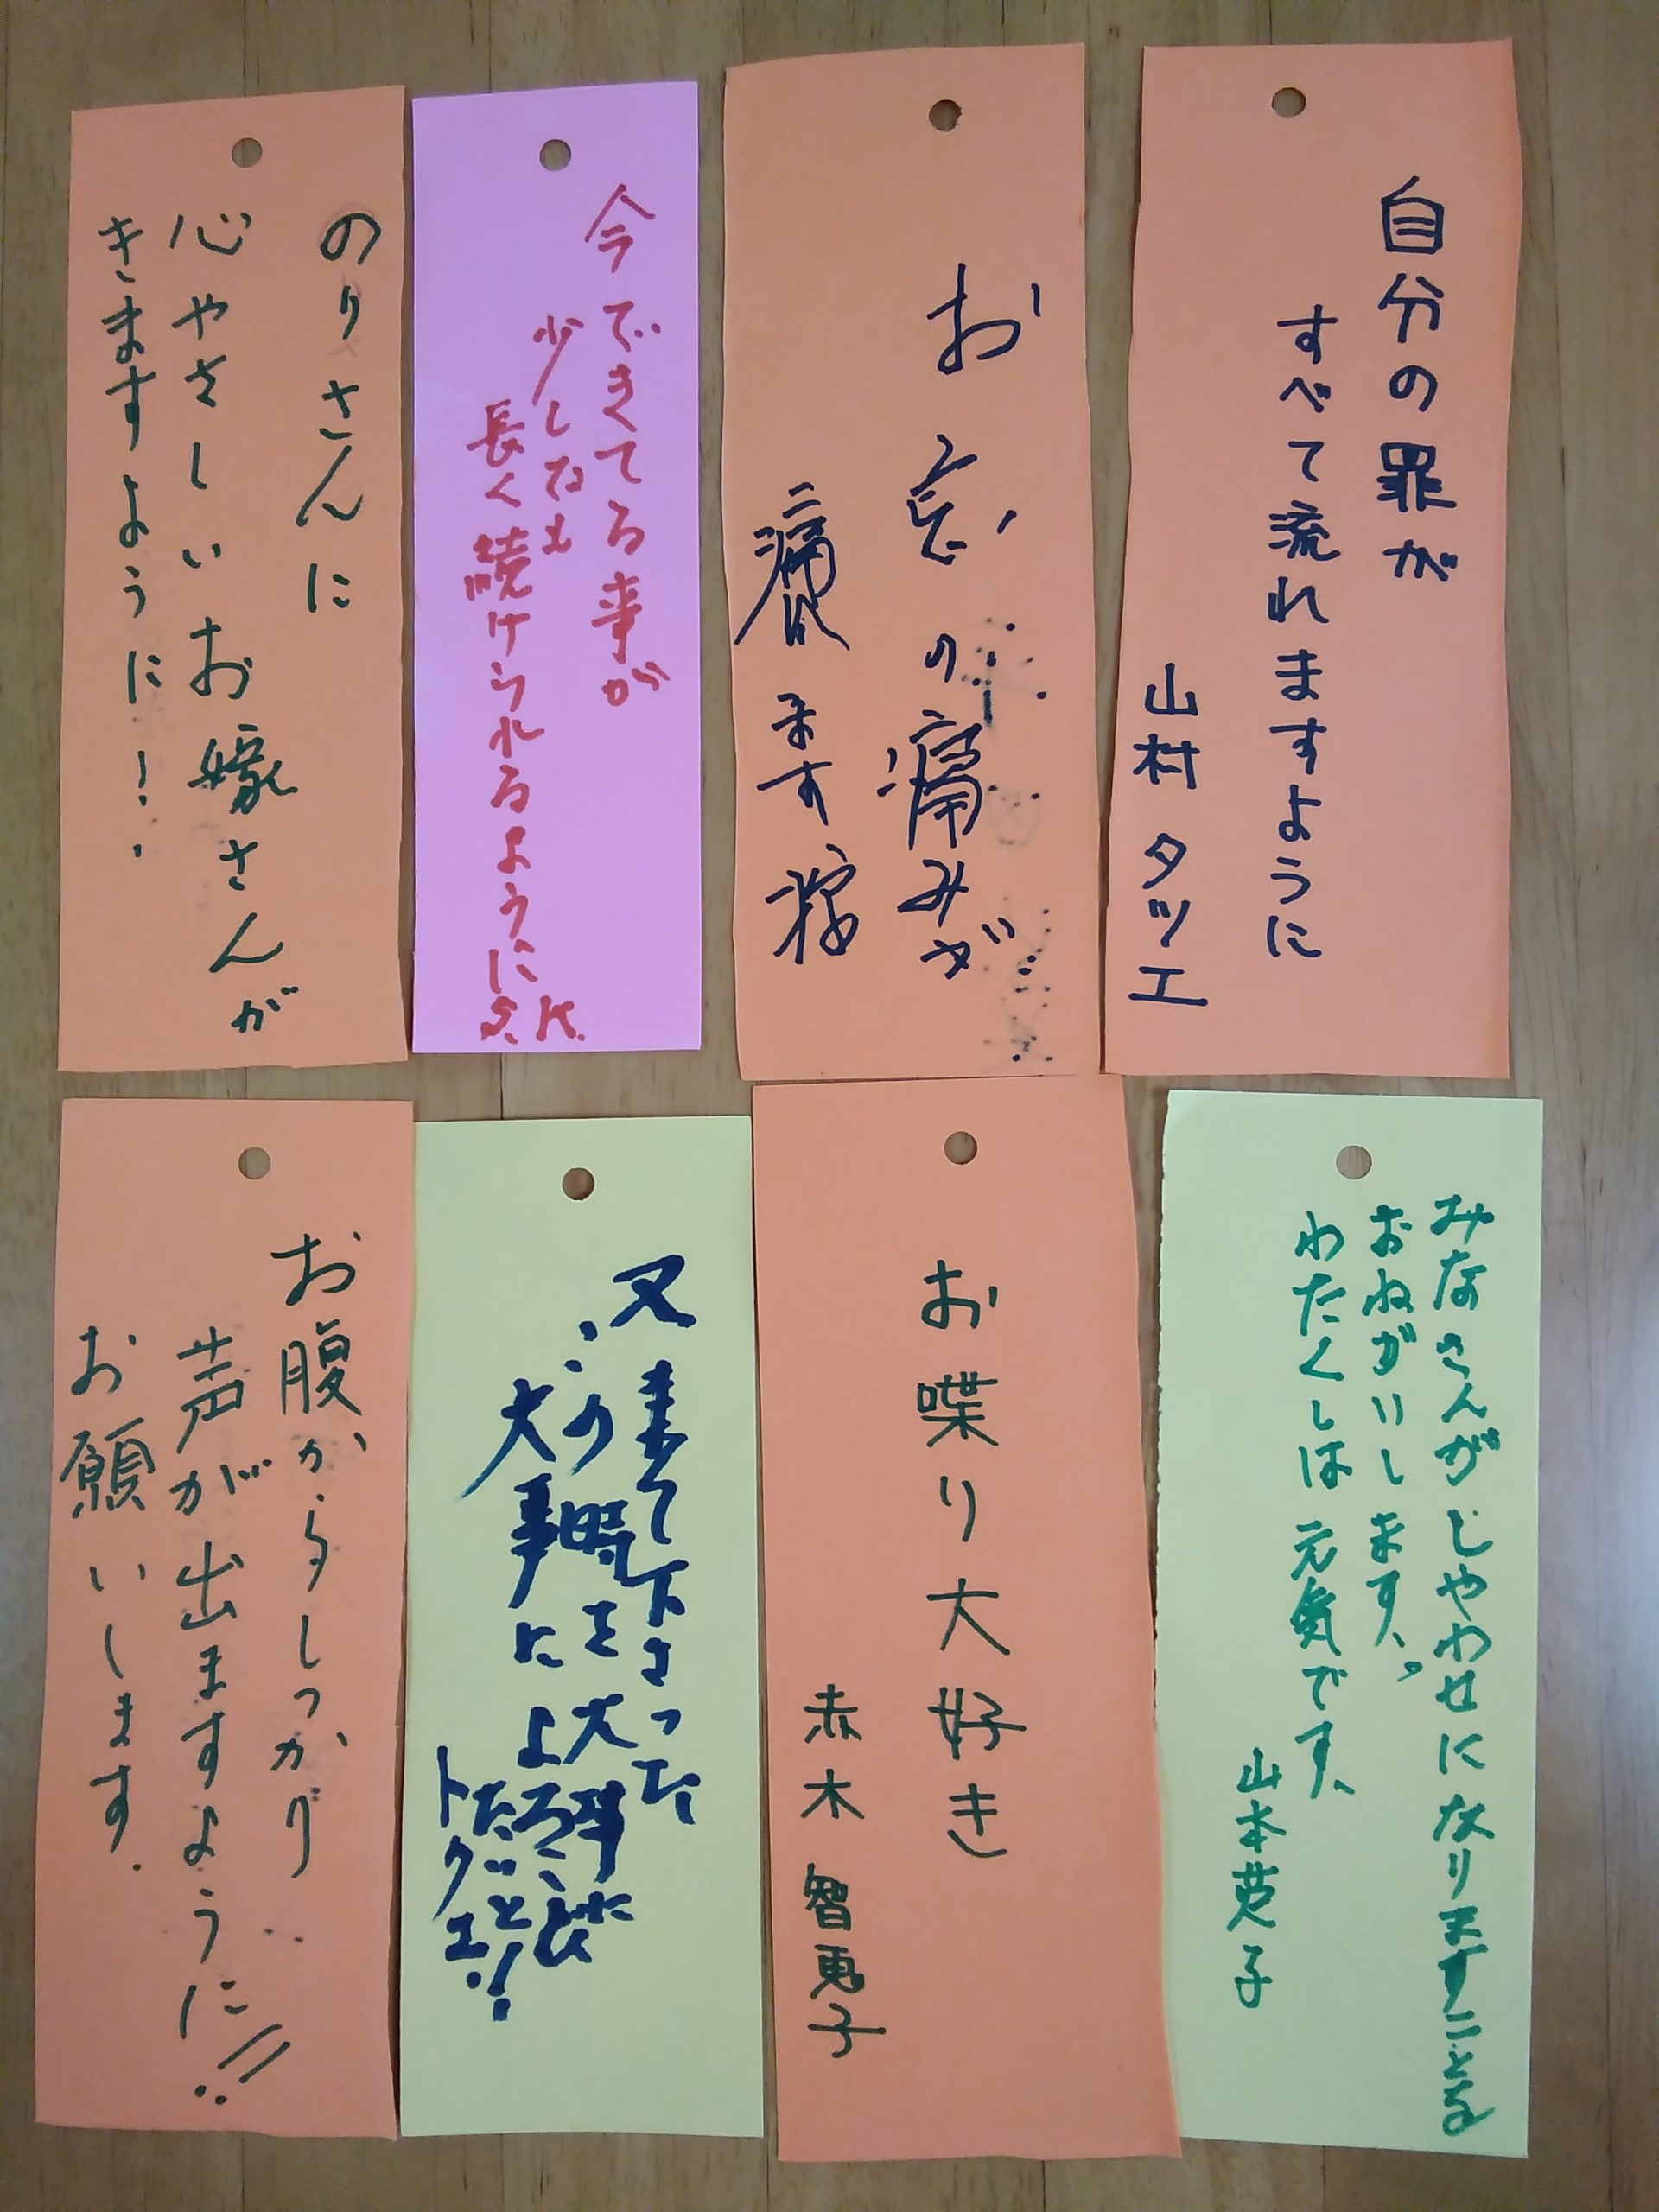 自分の罪が
すべて流れますように
山村タツエ
お
の痛みが
ます様
今できてる事が
少しでも
長く続けられるように
S.K.
のりさんに
心やさしいお嫁さんが
きますように!
みなさんがしやわせになりますことを
おねがいします。
わたくしは元気です、
山本英子
お喋り大好き
赤木智恵子
又来て下さった
この時を大事に
大事に
トクエ
お腹からしっかり
声が出ますように!!
お願いします.